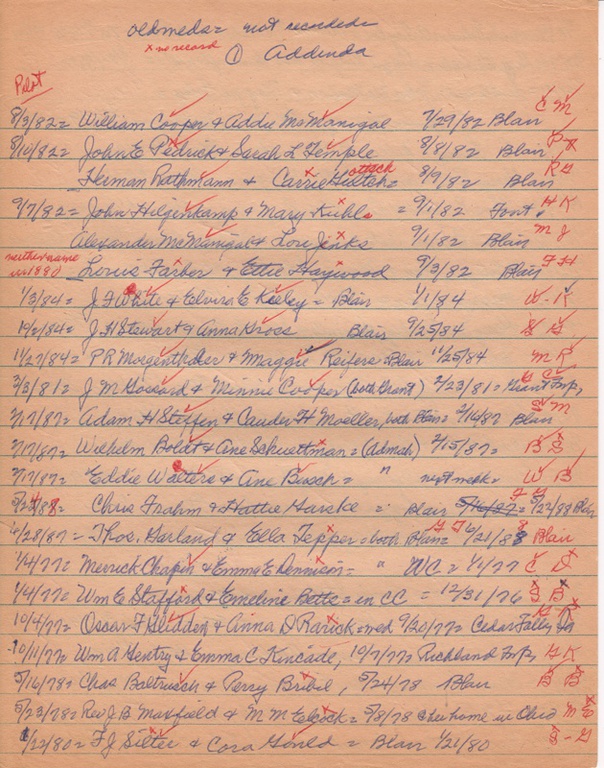 old medar not recorded
x no record ① Addenda
Pilot
8/3/82 = William Cooper & Addie McManigal 7/29/82 Blair C M
8/10/82 = John E Pedrick & Sarah L Temple 8/8/82 Blair P T
Herman Rathmann & Carrie 8/9/82 Blair R H
9/7/82 = John Hilgenkamp & Mary Kuhl = 9/1/82 Font. H K
Alexander McManigal & Lou Jinks 9/1/82 Blair M J
neither name in 1880 Louis Farber & Ettie Haywood 9/3/82 Blair F H
1/3/84 = J F White & Elvira E Keeley = Blair 1/1/84 W - K
10/2/84 = J H Stewart & Anna Kross Blair 9/25/84 S
11/27/84 = P R Morgenthaler & Maggie Reifers = Blair 11/25/84 M R
3/3/81 = J M Gossard & Minnie Cooper (both Grant) 2/23/81 = Grant Twp, G C
2/17/87 = Adam H Steffen & Cauder H Moeller, both Blair = 2/16/87 Blair S M
2/17/87 = Wilhelm Boldt & Ane Schuettman = (Admah) 2/15/87 = B S
2/17/87 = Eddie Walters & Ane Busch = " next week = W B
5/24/88 = Chris Frahm & Hattie Harske = Blair 5/16/87 = 5/22/88 Blair F H
6/28/87 = Thos. Garland & Ella Tepper = both Blair = G T 6/21/88 Blair
1/4/77 = Merrick Chapin & Emma E Dennison = " WC = 1/1/77 C D
1/4/77 = Wm E Stafford & Emeline Betts = in CC = 12/31/76 S B
10/4/77 = Oscar F Glidden & Anna D Rarick = wed 9/20/77 = Cedar Falls, Ia G R
10/11/77 = Wm A Gentry & Emma C Kincade, 10/7/77 = Richland Twp, G K
5/16/78 = Chas Baltrusch & Perry Bribil, 5/24/78 Blair B B
5/23/78 = Rev J B Maxfield & M M Elcock = 5/8/78 @ her home in Ohio M E
1/22/80 = F J Silter & Cora Gould = Blair 1/21/80 S - G